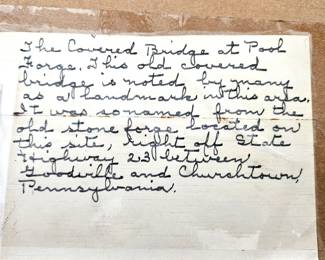 The Covered Bridge at Pool
Forge. This old covered
bridge is noted by many
as a landmark in this area.
It was so named from the
old stone forge located on
this site, right off State
Highway 23 between
Goodville and Churchtown,
Pennsylvania.